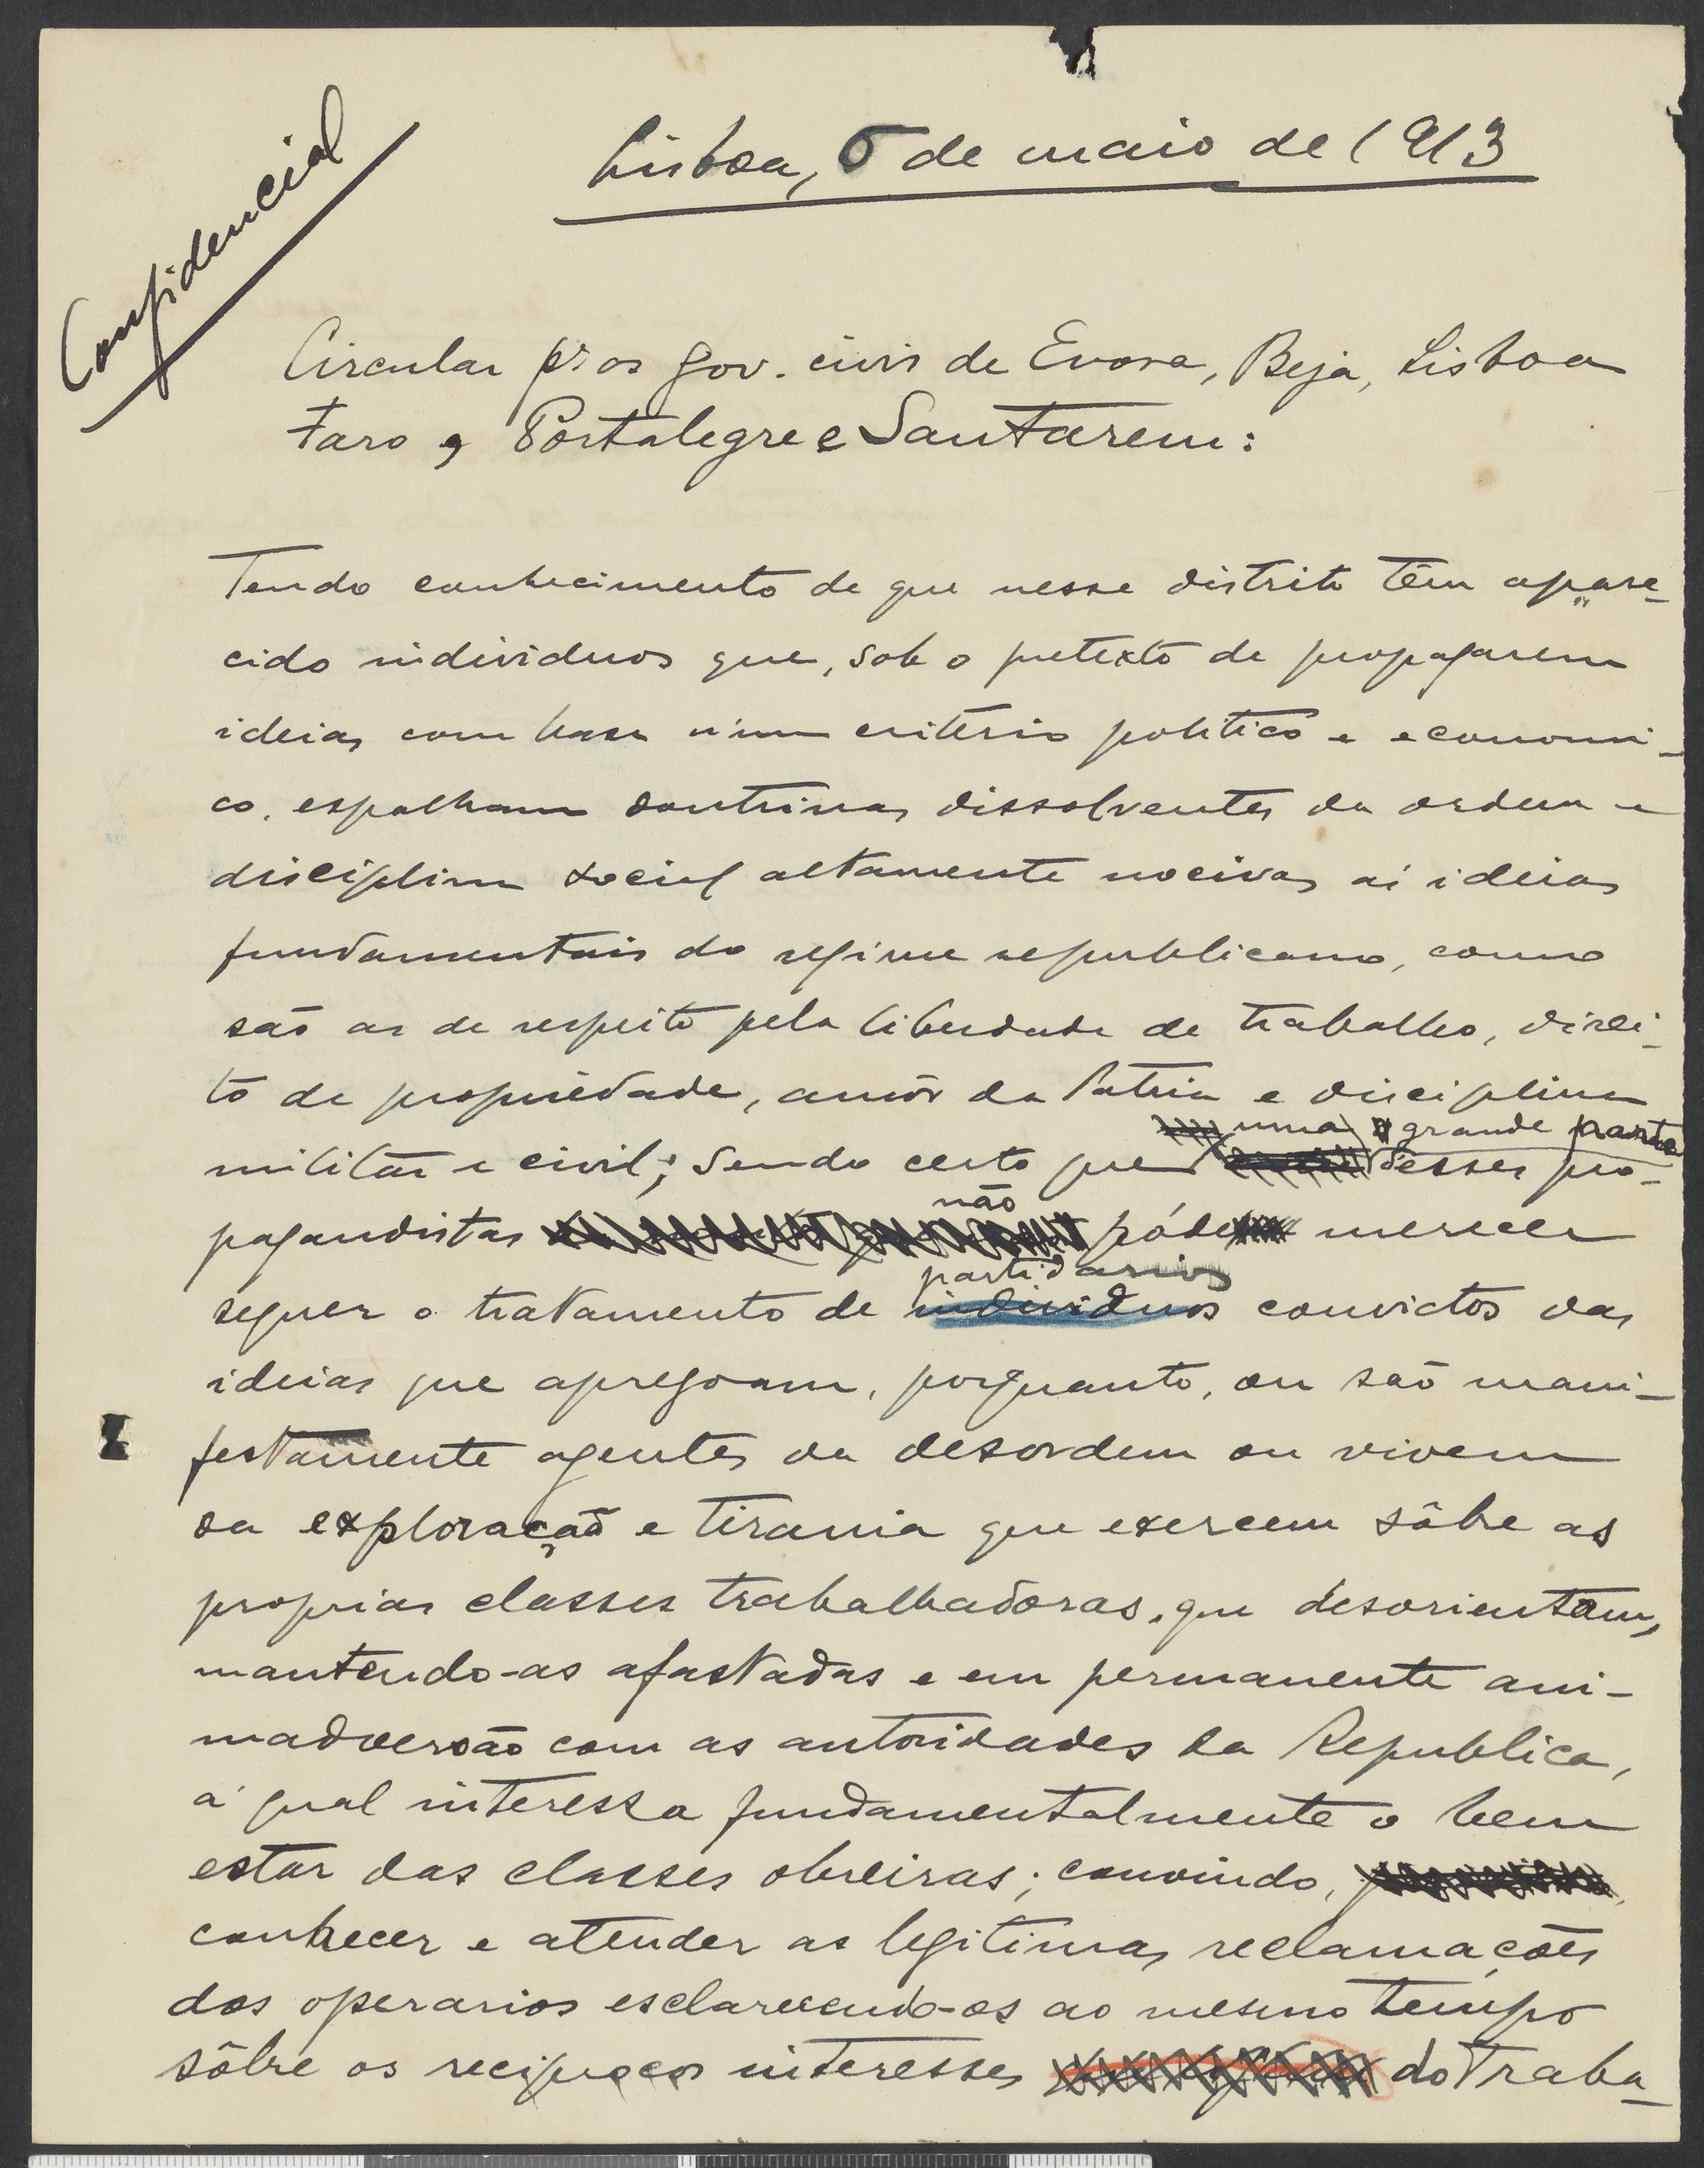 Confidencial
Lisboa, 5 de maio de 1913
Circular pª os gov. civis de Evora, Beja, Lisboa
Faro, Portalegre e Santarem:
Tendo conhecimento de que nesse distrito têm apare-
cido individuos que, sob o pretexto de propagarem
ideias com base n'um critério politico e economi-
co, espalham doutrinas dissolventes da ordem e
disciplina social altamente nocivas ás ideias
fundamentais do regime republicano, como
são as de respeito pela liberdade de trabalho, direi-
to de propriedade, amôr da Patria e disciplina
militar e civil; sendo certo que uma grande parte desses pro-
pagandistas não póde merecer
sequer o tratamento de individuos partidarios convictos das
ideias que apregoam, porquanto, ou são mani-
festamente agentes da desordem ou vivem
da exploração e tirania que exercem sôbre as
proprias classes trabalhadoras, que desorientam,
mantendo-as afastadas e em permanente ani-
madversão com as autoridades da Republica,
á qual interessa fundamentalmente o bem
estar das classes obreiras; convindo,
conhecer e atender as legitimas reclamações
dos operarios esclarecendo-os ao mesmo tempo
sôbre os reciprocos interesses do Traba-